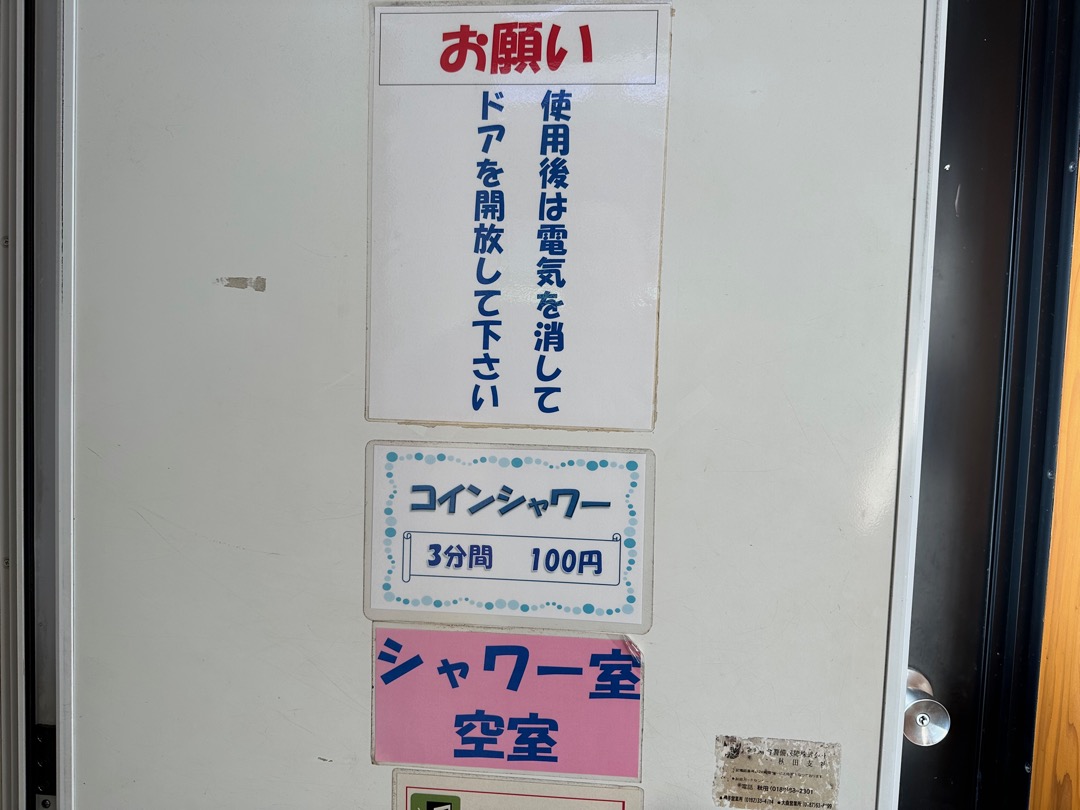 お願い
使用後は電気を消して
ドアを開放して下さい
コインシャワー
3分間 100円
シャワー室
空室
秋田支
電話 秋田